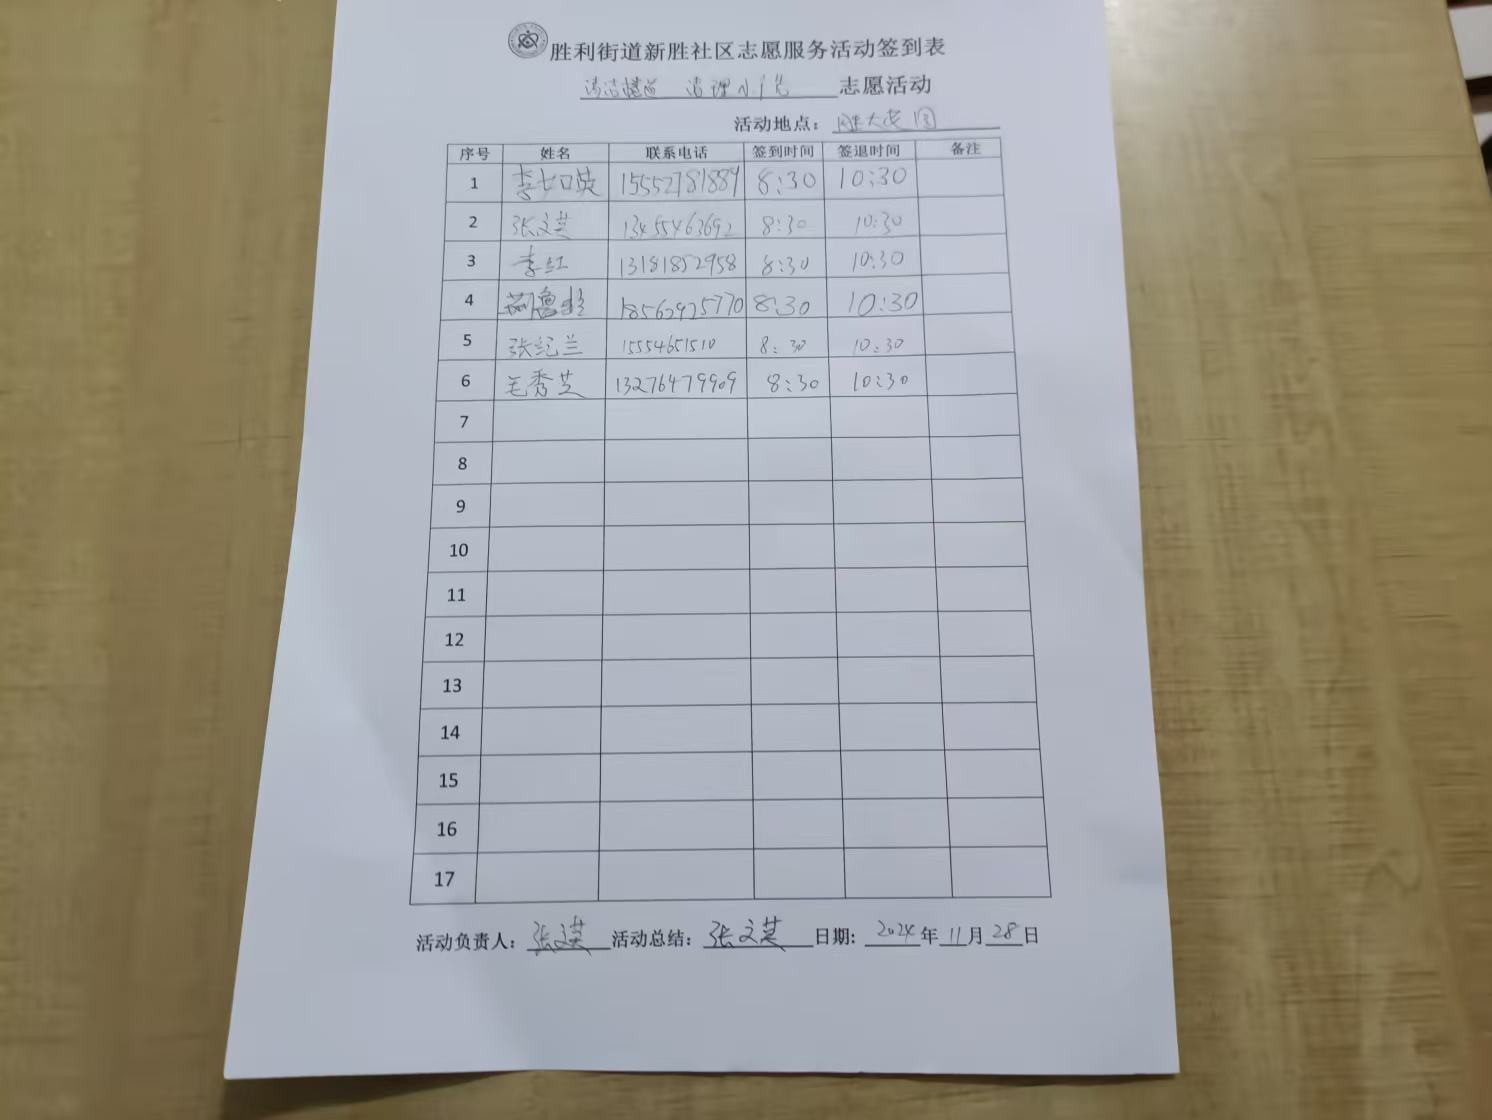 胜利街道新胜社区志愿服务活动签到表
清洁楼道 清理小广告 志愿活动
活动地点: 胜大花园
序号 姓名 联系电话 签到时间 签退时间 备注
1 李如英 15552781889 8:30 10:30
2 张文英 13455463692 8:30 10:30
3 李红 13181852958 8:30 10:30
4 18562925770 8:30 10:30
5 张纪兰 15554651510 8:30 10:30
6 毛秀芝 13276479909 8:30 10:30
7
8
9
10
11
12
13
14
15
16
17
活动负责人: 张文英 活动总结: 张文英 日期: 2024年11月28日